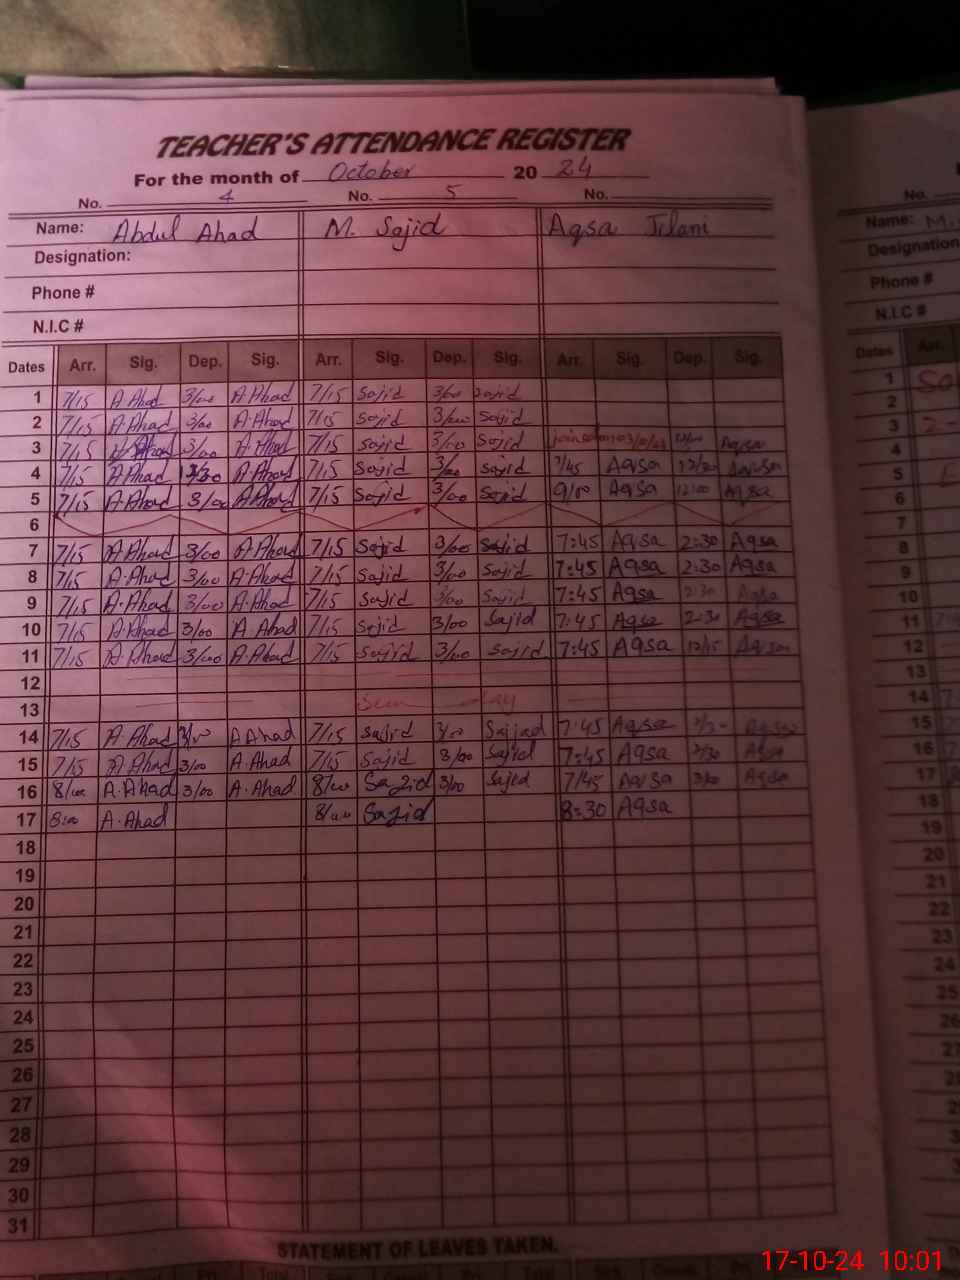 TEACHER'S ATTENDANCE REGISTER
For the month of October 20 24
No. 4 No. 5 No.
Name: Abdul Ahad M. Sajid Aqsa Jilani
Designation:
Phone #
N.I.C #
Dates Arr. Sig. Dep. Sig. Arr. Sig. Dep. Sig. Arr. Sig. Dep. Sig.
1 7/15 A.Ahad 3/00 A.Ahad 7/15 Sajid 3/00 Sajid
2 7/15 A.Ahad 3/00 A.Ahad 7/15 Sajid 3/00 Sajid
3 7/15 Ahad 3/00 A.Ahad 7/15 Sajid 3/00 Sajid Aqsa
4 7/15 A.Ahad A.Ahad 7/15 Sajid 3/00 Sajid 7/45 Aqsa Aqsa
5 7/15 A.Ahad 3/00 A.Ahad 7/15 Sajid 3/00 Sajid 9/00 Aqsa 12:00 Aqsa
6
7 7/15 A.Ahad 3/00 A.Ahad 7/15 Sajid 3/00 Sajid 7:45 Aqsa 2:30 Aqsa
8 7/15 A.Ahad 3/00 A.Ahad 7/15 Sajid 3/00 Sajid 7:45 Aqsa 2:30 Aqsa
9 7/15 A.Ahad 3/00 A.Ahad 7/15 Sajid 3/00 Sajid 7:45 Aqsa 2:30 Aqsa
10 7/15 A.Ahad 3/00 A Ahad 7/15 Sajid 3/00 Sajid 7:45 Aqsa 2:30 Aqsa
11 7/15 A.Ahad 3/00 A.Ahad 7/15 Sajid 3/00 Sajid 7:45 Aqsa 12/15 Aqsa
12
13
14 7/15 A.Ahad A Ahad 7/15 Sajid 3/00 Sajjad 7:45 Aqsa Aqsa
15 7/15 A.Ahad 3/00 A.Ahad 7/15 Sajid 3/00 Sajid 7:45 Aqsa 2/30 Aqsa
16 8/00 A.Ahad 3/00 A.Ahad 8/00 Sajid 3/00 Sajid 7/45 Aqsa 3/00 Aqsa
17 8:00 A.Ahad 8/00 Sajid 8:30 Aqsa
18
19
20
21
22
23
24
25
26
27
28
29
30
31
STATEMENT OF LEAVES TAKEN.
No.
Name: M.
Designation
Phone #
N.I.C #
Dates Arr.
1
2
3
4
5
6
7
8
9
10
11
12
13
14
15
16
17
18
19
20
21
22
23
24
25
26
17-10-24 10:01